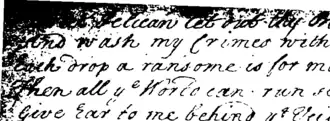 Pelican let not thy
And wash my Crimes with
Each drop a ransome is for m
Then all yᵉ World can run s
Give Ear to me behind yᵗ